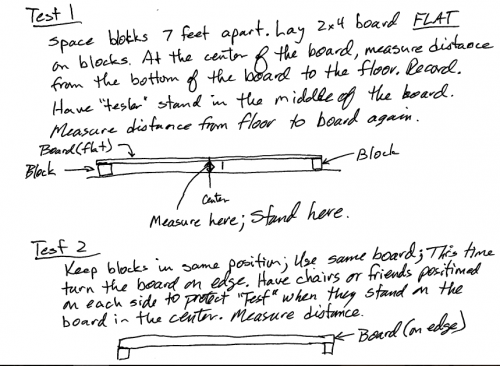 Test 1
Space blocks 7 feet apart. Lay 2x4 board FLAT
on blocks. At the center of the board, measure distance
from the bottom of the board to the floor. Record.
Have "tester" stand in the middle of the board.
Measure distance from floor to board again.
Board (flat)
Block
Block
Center
Measure here; Stand here.
Test 2
Keep blocks in same position; Use same board; This time
turn the board on edge. Have chairs or friends positioned
on each side to protect "Test" when they stand on the
board in the center. Measure distance.
Board (on edge)